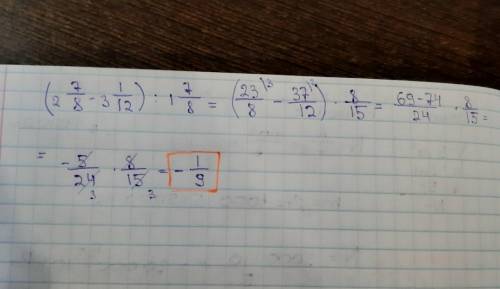 (2 7/8 - 3 1/12) : 1 7/8 = (23/8 ^3 - 37/12 ^2) · 8/15 = 69-74/24 · 8/15 =
= -5/24 3 · 8/15 3 = - 1/9